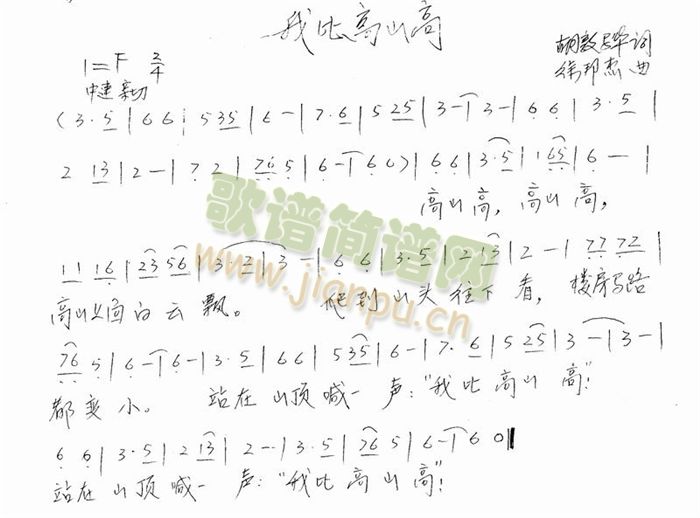 我比高山高
1=F 2/4
胡敦骅词
徐邦杰 曲
中速 亲切
(3·5|66|535|6-|7·6|525|3-|3-|66|3·5|
2 13|2-|72|765|6-|60)|66|3·5|165|6-|
高山高,高山高,
11 16|23 56|3 2|3-|66|3·5|213|2-|77 72|
高山上面白云飘。 爬到山头往下看,楼房马路
76 5|6-|6-|3·5|66|535|6-|7·6|525|3-|3-|
都变小。 站在山顶喊一声:“我比高山高!
66|3·5|213|2-|3·5|765|6-|60‖
站在山顶喊一声:“我比高山高”!
歌谱简谱网
www.jianpu.cn